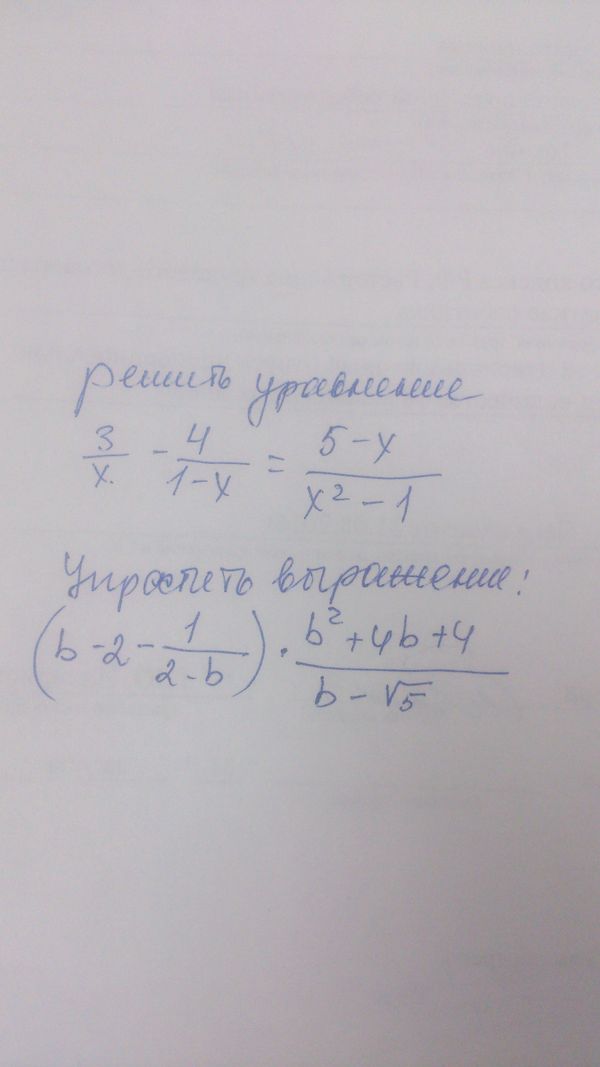 решить уравнение
3/x. - 4/(1-x) = (5-x)/(x² - 1)
Упростить выражение:
(b - 2 - 1/(2-b)) · (b² + 4b + 4)/(b - √5)